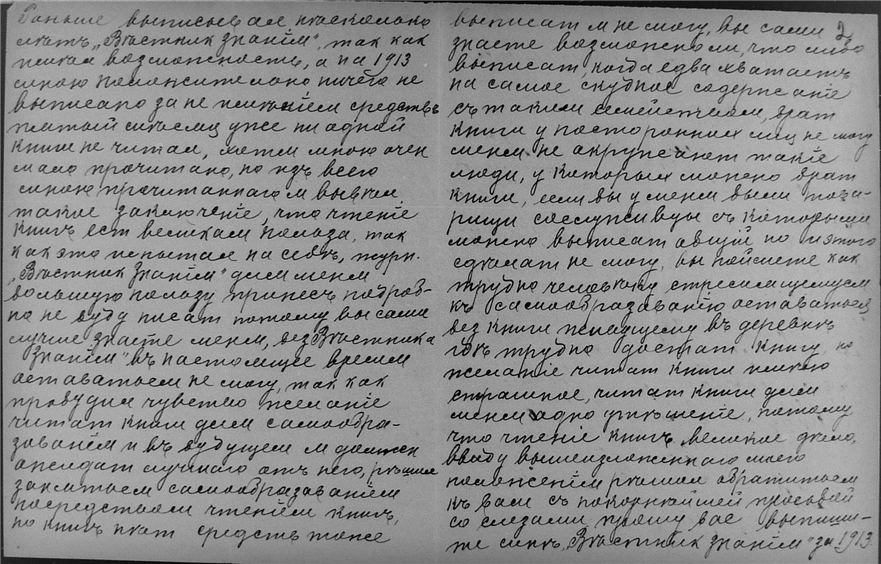 Раньше выписывал несколько
лѣтъ „Вѣстник знанія", так как
имѣл возможность, а на 1913
мною положително ничего не
выписано за не имѣніем средствъ
пятый мѣсяц уже ни одной
книги не читал, хотя мною очен
мало прочитано, но изъ всего
мною прочитаннаго я вывел
такое заключение, что чтеніе
книгъ ест великая полза, так
как это испытал на себѣ, журн.
„Вѣстник знанія" для меня
большую ползу принесъ подроб-
но не буду писат потому вы сами
лучше знаете меня, без Вѣстника
знанія" въ настоящее время
оставаться не могу, так как
пробудил чувство желаніе
читат книги для самообра-
зованія и въ будущем я должен
ожидат лучшаго отъ него, рѣшил
занятьея самообразованіем
посредством чтенія книгъ,
но книгъ нѣт средствъ тоже
2
выписат я не могу, вы сами
знаете возможно ли, что либо
выписат, когда едва хватаетъ
на самое скудное содержание
съ таким семейством, брат
книги у посторонних лиц не могу
меня не окружают такіе
люди, у которых можно брат
книги, если бы у меня были това-
рищи сослуживцы съ которыми
можно выписат общій но и этого
сдѣлат не могу, вы поймете как
трудно человѣку стремящемуся
къ самообразованію оставаться
без книги живущему въ деревнѣ
гдѣ трудно достат книгу, но
желаніе читат книги имѣю
страшное, читат книги для
меня одно утѣшеніе, потому
что чтеніе книгъ великое дѣло,
ввиду вышеизложеннаго моего
положенія рѣшил обратиться
къ вам съ покорнейшей просьбой
со слезами, прошу вас выпиши-
те мнѣ „Вѣстник знанія" за 1913